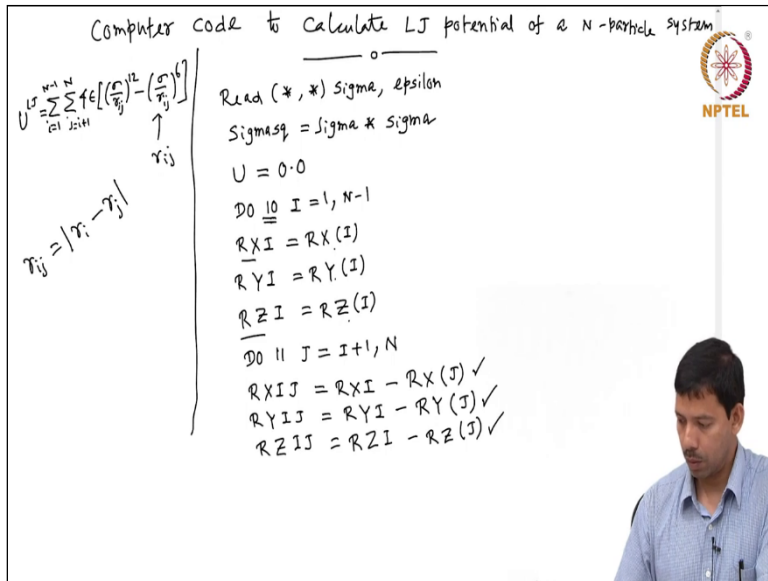 Computer code to Calculate LJ potential of a N-particle system
NPTEL
U^LJ = Σ_{i=1}^{N-1} Σ_{j=i+1}^{N} 4ϵ[(σ/r_ij)^12 - (σ/r_ij)^6]
↑
r_ij
r_ij = |r_i - r_j|
Read (*,*) Sigma, epsilon
Sigmasq = Sigma * Sigma
U = 0.0
DO 10 I = 1, N-1
RXI = RX(I)
RYI = RY(I)
RZI = RZ(I)
DO 11 J = I+1, N
RXIJ = RXI - RX(J) ✓
RYIJ = RYI - RY(J) ✓
RZIJ = RZI - RZ(J) ✓